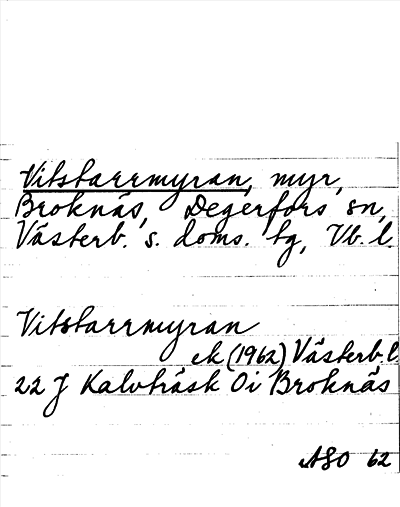 Vitstarrmyran, myr,
Broknäs, Degerfors sn,
Västerb. s. doms. tg, Vb. l.
Vitstarrmyran
ek (1962) Västerb. l
22 J Kalvträsk Oi Broknäs
ASO 62